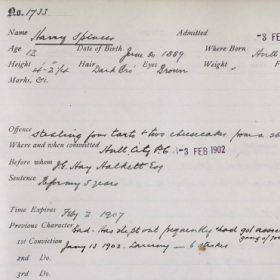 No. 1733
Name Harry Spincer Admitted -3 FE
Age 12 Date of Birth June 20 1889 Where Born Hull
Height 4-2¾ Hair Dark Bro Eyes Brown Weight F
Marks, &c.
Offence stealing four tarts & two cheesecakes from a s
Where and when committed Hull City P.C. -3 FEB 1902
Before whom J.G. Hay Halkett Esq
Sentence Reformy 5 years
Time Expires Feb 2 1907
Previous Character Bad. Has slept out frequently had got
gang of
1st Conviction Jany 13 1902. Larceny — 6 strokes
2nd Do.
3rd Do.